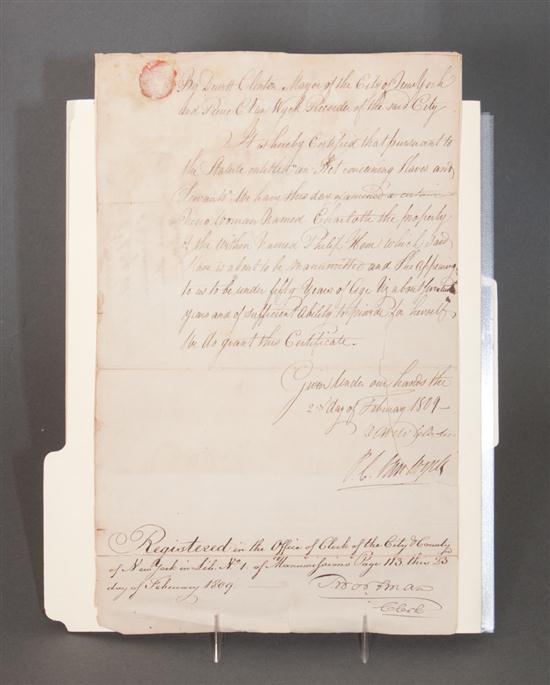 By Dewitt Clinton Mayor of the City of New York
and Pierre C Van Wyck Recorder of the said City
It is hereby Certified that pursuant to
the Statute entitled "an Act concerning Slaves and
Servants" We have this day examined a certain
Negro Woman Named Charlotte the property
of the within Named Philip Hone which said
Slave is about to be manumitted and She Appearing
to us to be under fifty Years of Age Viz about
years and of sufficient Ability to provide for herself
We do grant this Certificate.
Given Under our hands the
2 day of February 1809—
De Witt Clinton
P. C. Van Wyck
Registered in the Office of Clerk of the City & County
of New York in Lib. No 1. of Manumissions Page 113 this 23
day of February 1809
Clerk